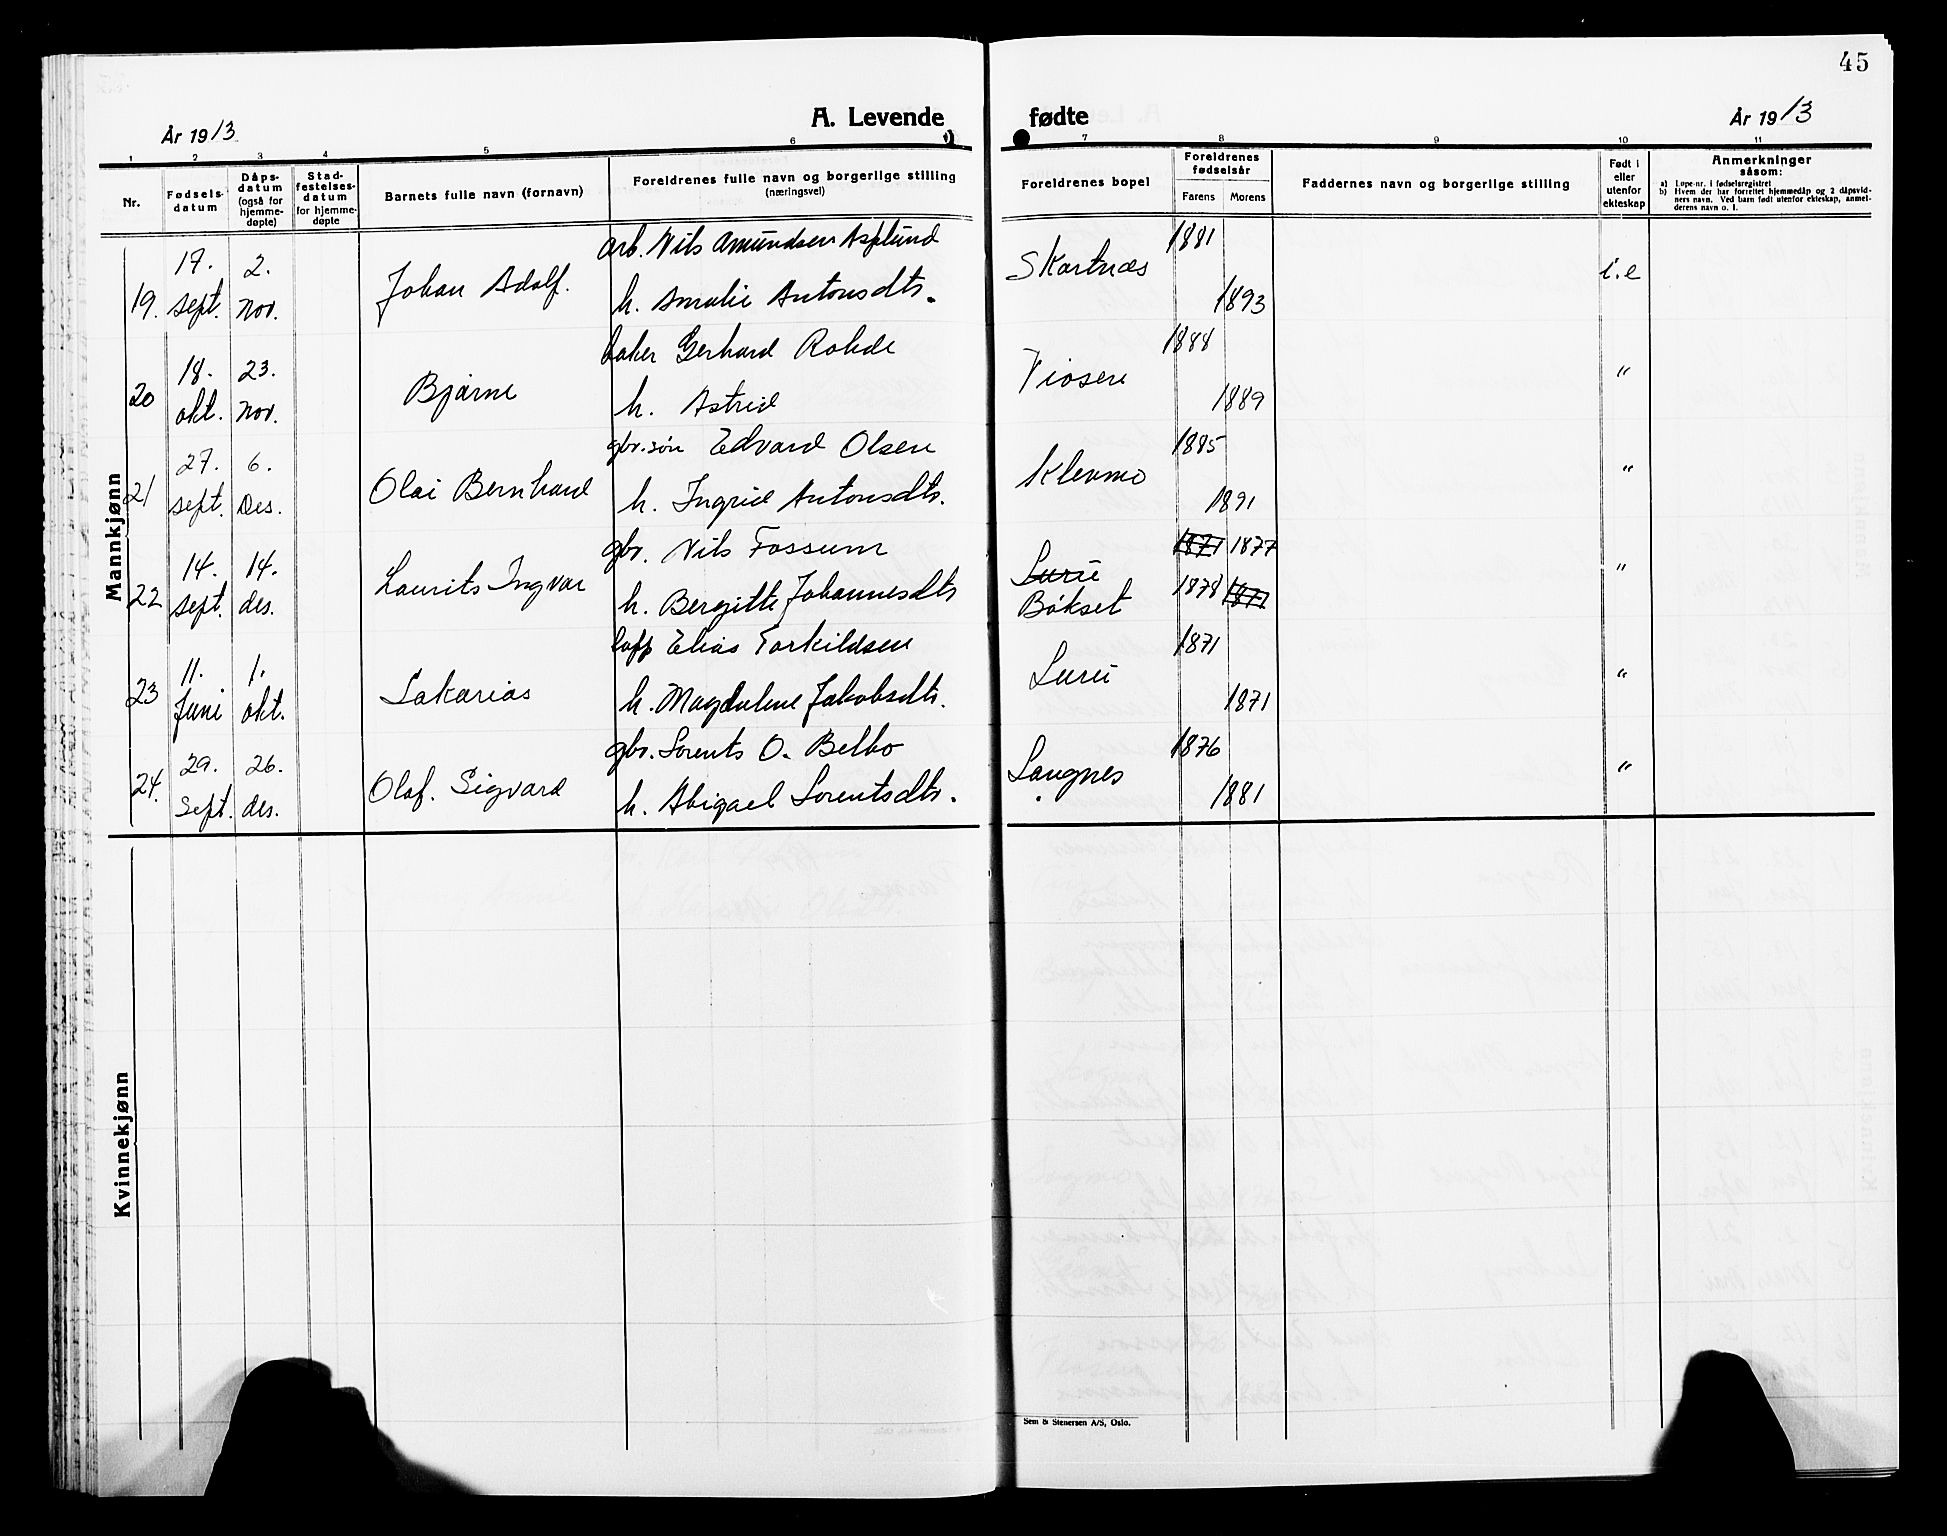 45
A. Levende fødte
År 1913
År 1913
1 2 3 4 5 6 7 8 9 10 11
Nr.
Fødsels-
datum
Dåps-
datum
(også for
hjemme-
døpte)
Stad-
festelses-
datum
for hjemme-
døpte
Barnets fulle navn (fornavn)
Foreldrenes fulle navn og borgerlige stilling
(næringsvei)
Foreldrenes bopel
Foreldrenes
fødselsår
Farens Morens
Faddernes navn og borgerlige stilling
Født i
eller
utenfor
ekteskap
Anmerkninger
såsom:
a) Løpe-nr. i fødselsregistret
b) Hvem der har forrettet hjemmedåp og 2 dåpsvid-
ners navn. Ved barn født utenfor ekteskap, anmel-
derens navn o. l.
Mannkjønn
19. 17. sept. 2. nov. Johan Adolf.
arb. Nils Amundsen Asplund
h. Amalie Antonsdtr.
Skartnæs 1881 1893 i.e
20 18. okt. 23. nov. Bjarne
baker Gerhard Rohde
h. Astrid
Viosen 1888 1889 "
21 27. sept. 6. Des. Olai Bernhard
gbr.søn Edvard Olsen
h. Ingrid Antonsdtr.
Klevmo 1885 1891 "
22 14. sept. 14. des. Laurits Ingvar
gbr. Nils Fossum
h. Bergitte Johannesdtr
Lurü
Bökset 1871 1877
1878 1877 "
23 11. Juni 1. okt. Sakarias
Elias Torkildsen
h. Magdalene Jakobsdtr.
Lurü 1871 1871 "
24. 29. Sept. 26. des. Olaf. Sigvard
gbr. Lorents O. Belbo
h. Abigael Lorentsdtr.
Langnes 1876 1881 "
Kvinnekjønn
Sem & Stenersen A/S, Oslo.